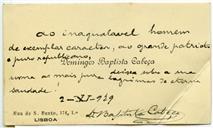 ao inegualavel homem
de exemplar caracter, ao grande patriota
e puro republicano,
Domingo Baptista Cabeça
uma as mais puras lagrimas de eterna
saudade!
2-XI-929
Rua de S. Bento, 174, 1.º
LISBOA
D. Baptista Cabeça